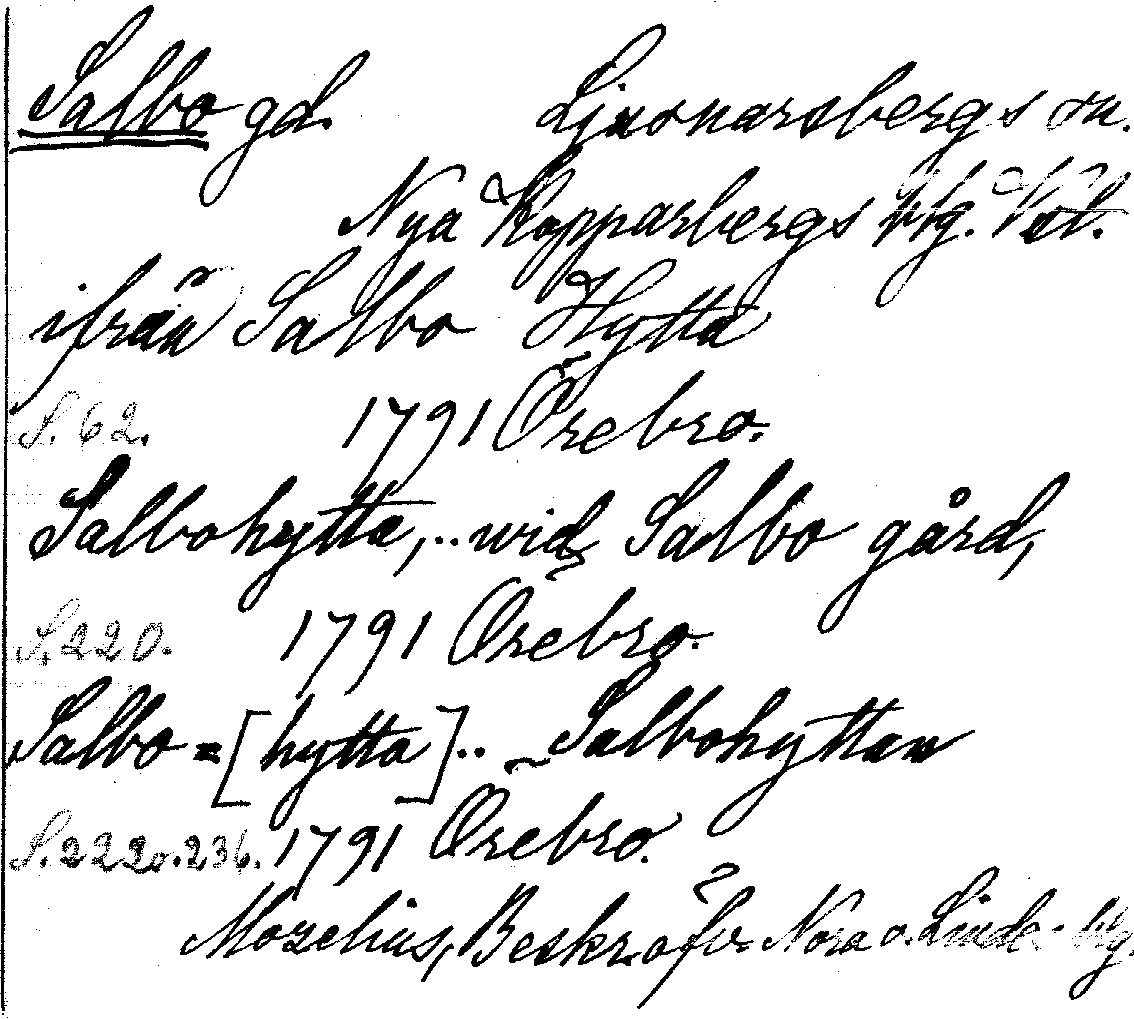 Salbo gd. Ljusnarsbergs sn.
Nya Kopparbergs blg. Vstl.
ifrån Salbo Hytta
S. 62. 1791 Örebro.
Salbohytta, .. wid Salbo gård,
S. 220. 1791 Örebro.
Salbo=[hytta] .. ~ Salbohyttan
S. 222 o. 236. 1791 Örebro.
Morelius, Beskr. öfv. Nora o. Linde blg.